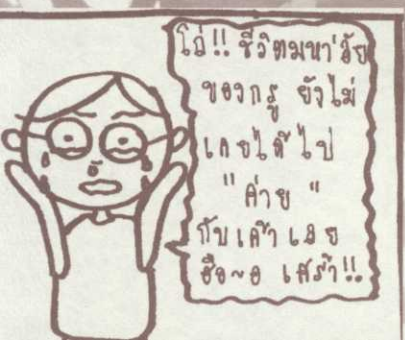 โถ่!! ชีวิตมหา'ลัย
ของกรู ยังไม่
เคยได้ไป
"ค่าย"
กับเค้าเลย
ฮือ~อ เศร้า!!